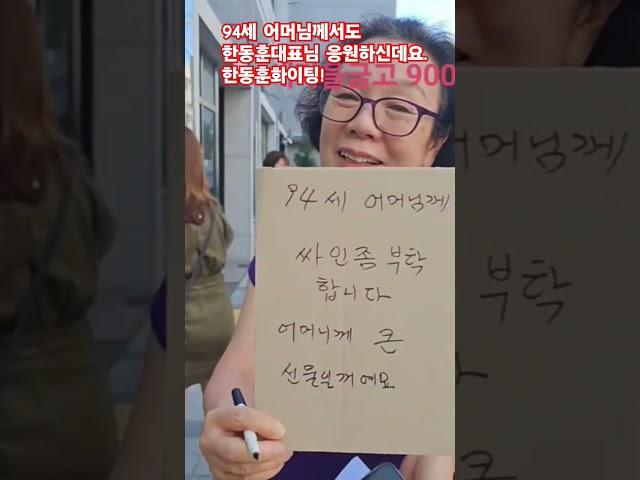 94세 어머님께서도
한동훈대표님 응원하신데요.
한동훈화이팅!
금고 900
94세 어머님께
싸인좀 부탁
합니다
어머니께 큰
선물일꺼예요
머님께
부탁
큰